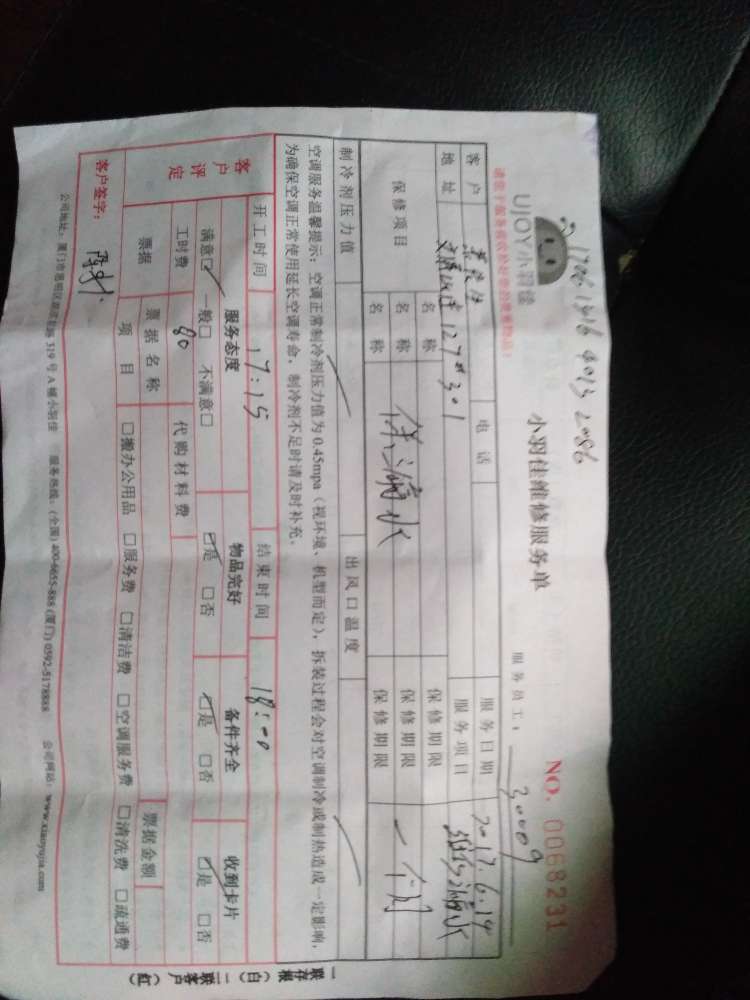 1706 1416 4013 2086
UJOY小羽佳
小羽佳维修服务单
NO. 0068231
服务员工： 30009
客户 电话 服务日期 2017.6.14
地址 127#301 服务项目 维修漏水
保修项目 名称 保修期限
名称 漏水 保修期限 一个月
制冷剂压力值 出风口温度
空调服务温馨提示：空调正常制冷剂压力值为 0.45mpa（视环境、机型而定），拆装过程会对空调制冷或制热造成一定影响，
为确保空调正常使用延长空调寿命，制冷剂不足时请及时补充。
开工时间 17:15 结束时间 18:00
客户评定 服务态度 物品完好 备件齐全 收到卡片
满意☑ 一般□ 不满意□ ☑是 □否 ☑是 □否 ☑是 □否
工时费 80 代购材料费
票据 票据名称 票据金额
项目 □搬办公用品 □服务费 □清洁费 □空调服务费 □清洗费 □疏通费
客户签字：
服务热线：(全国) 400-6655-888 (厦门) 0592-5178888 公司网站：www.xiaoyujia.com
一联存根（白）二联客户（红）